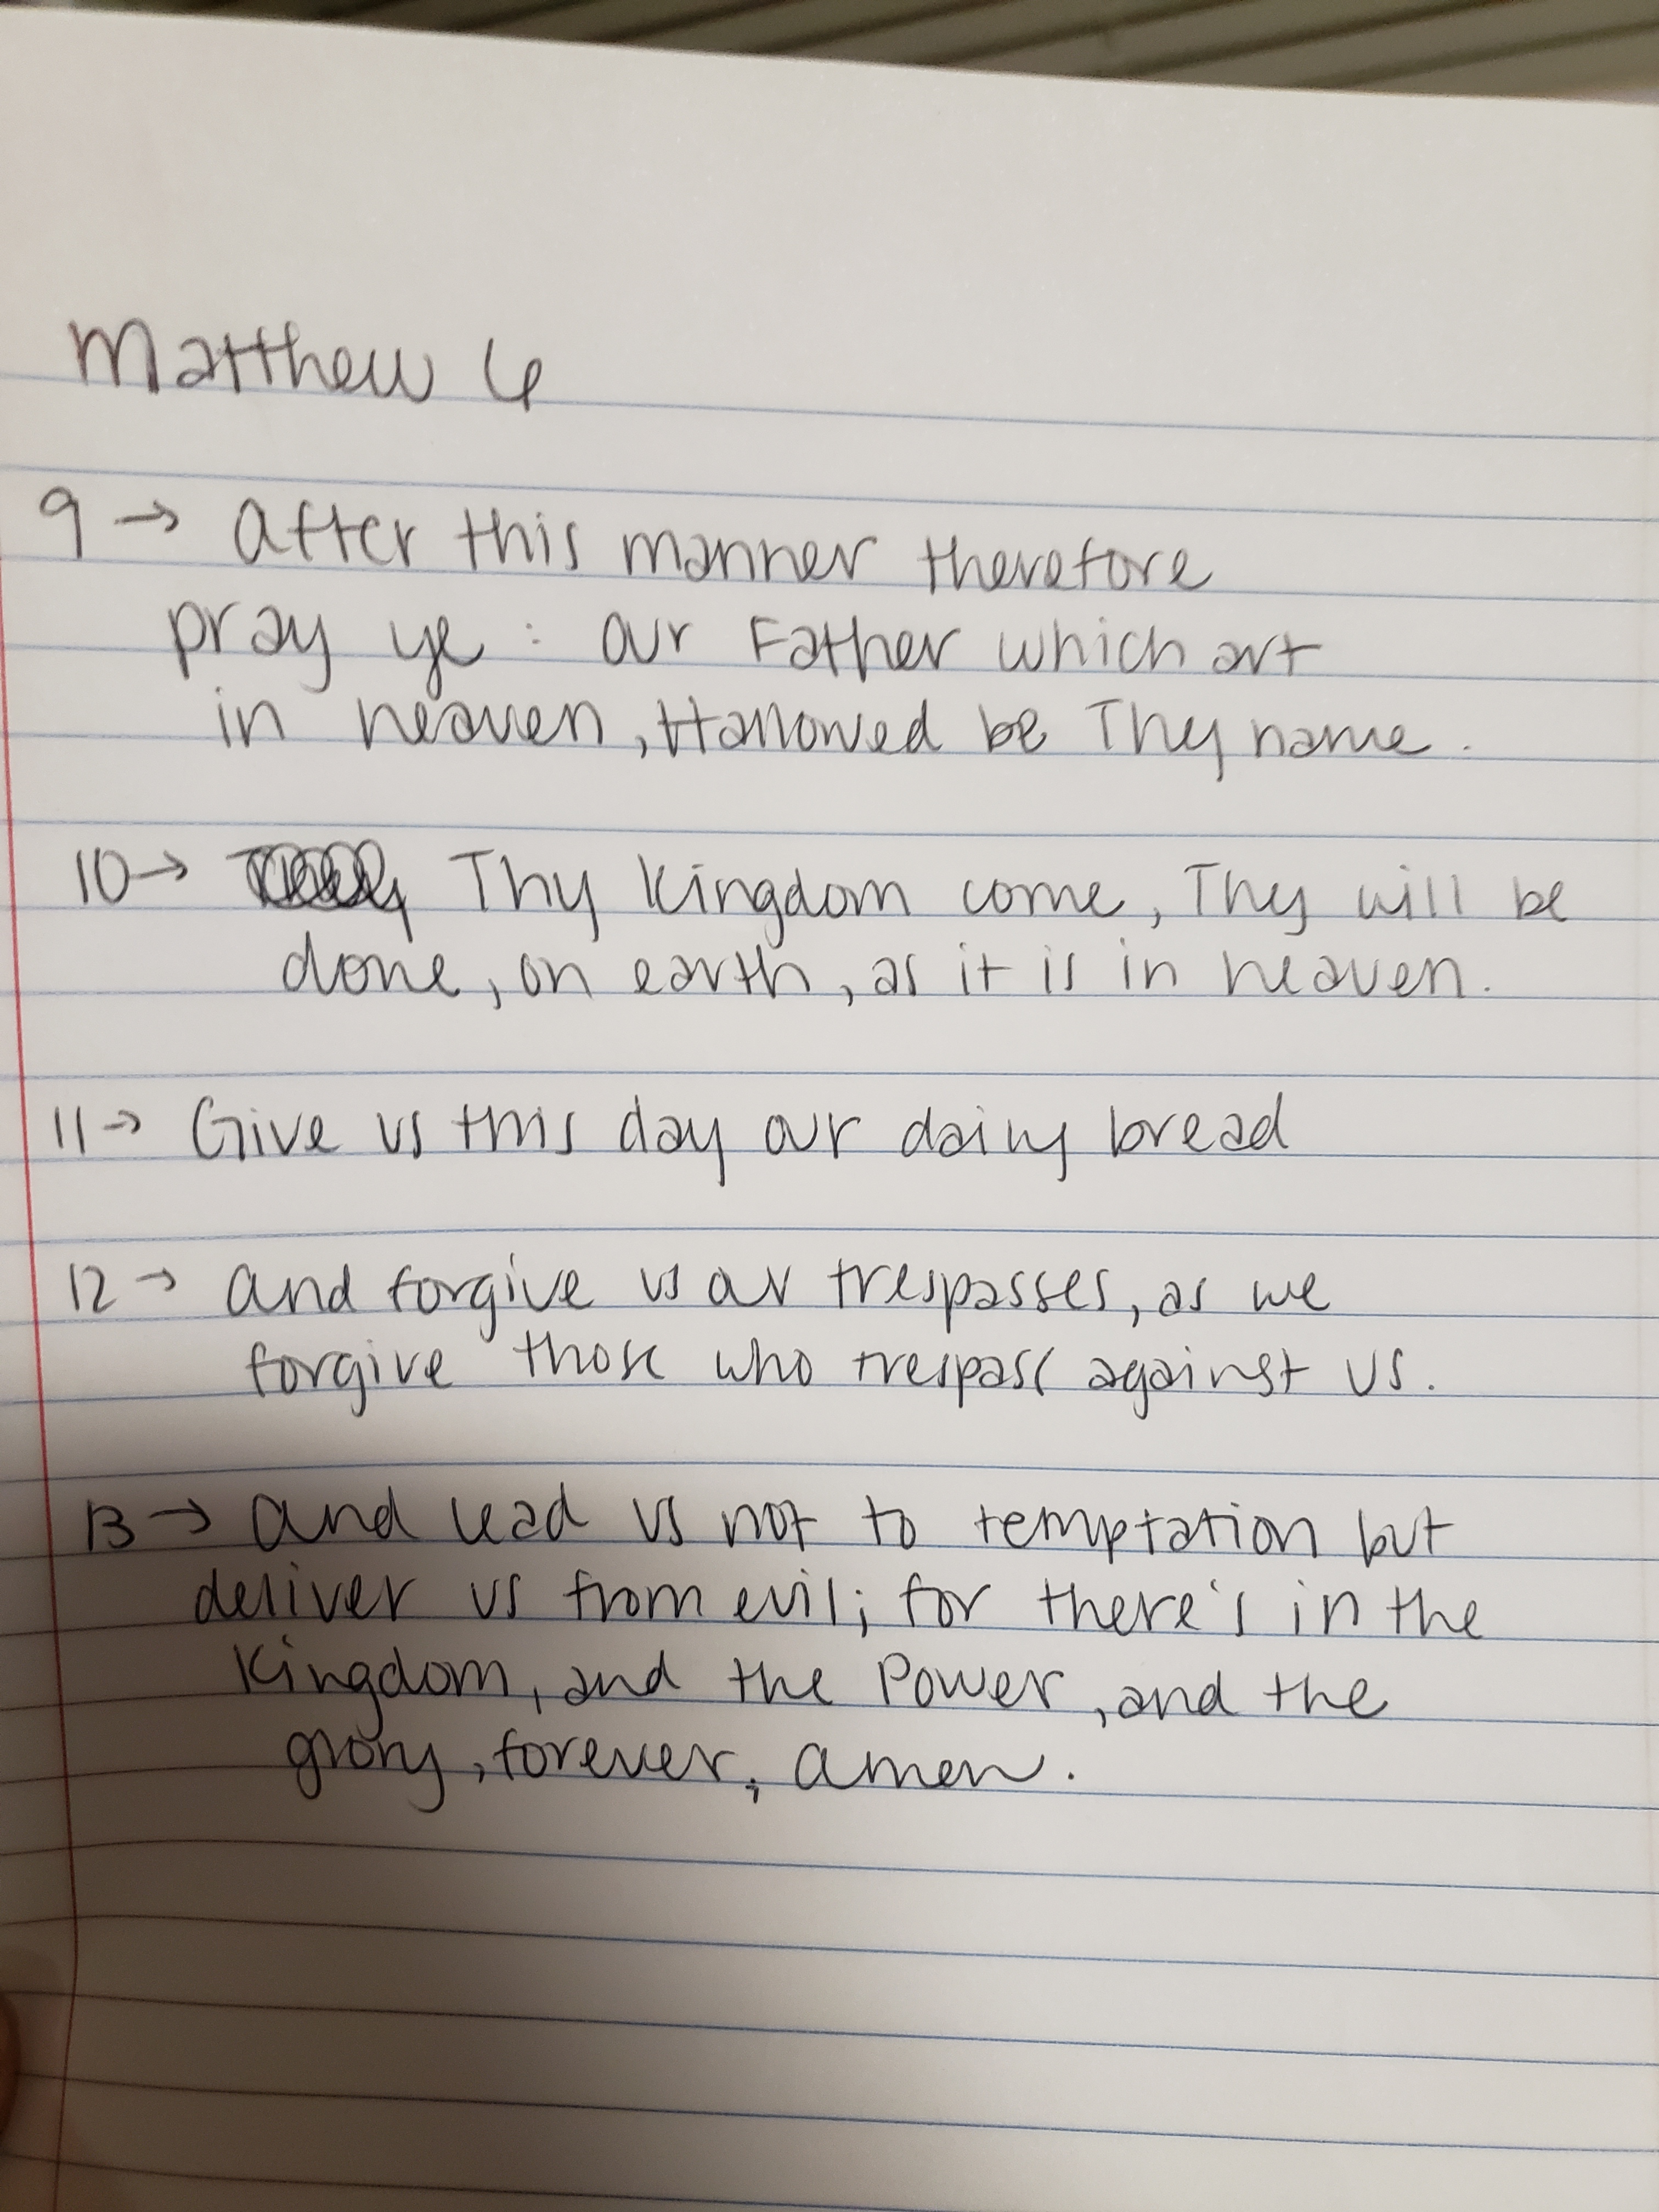 Matthew 6
9 → After this manner therefore
pray ye : our Father which art
in heaven, Hallowed be Thy name.
10 → Thy Kingdom come, Thy will be
done, on earth, as it is in heaven.
11 → Give us this day our daily bread
12 → and forgive us our trespasses, as we
forgive those who trespass against us.
13 → and lead us not to temptation but
deliver us from evil; for there's in the
Kingdom, and the Power, and the
glory, forever, amen.